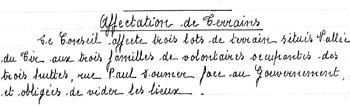 Affectation de Terrains
Le Conseil affecte trois lots de terrain situés Vallée
du Tir aux trois familles de volontaires occupantes des
trois huttes, rue Paul Doumer face au Gouvernement,
et obligées de vider les lieux.